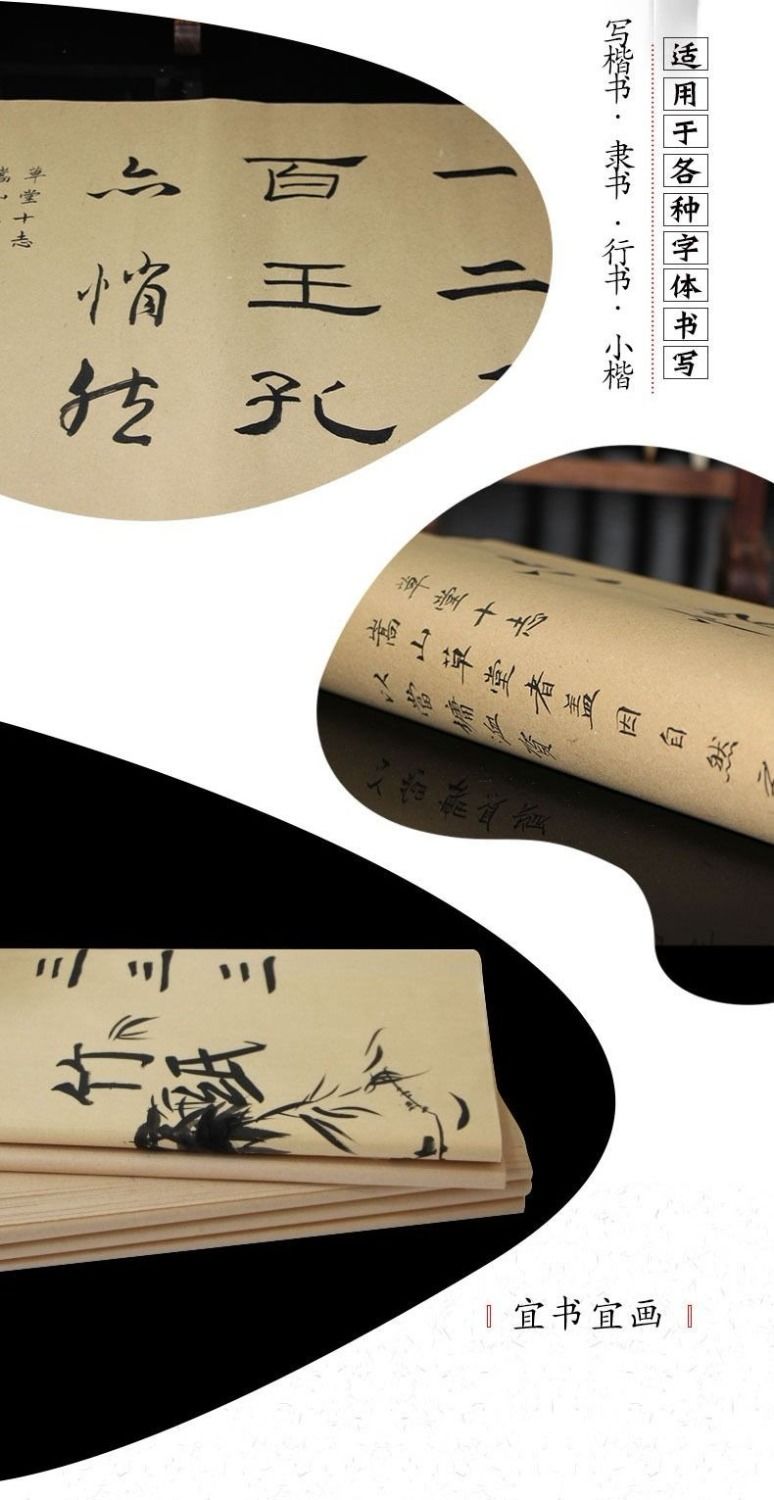 适用于各种字体书写
写楷书·隶书·行书·小楷
一二
百王孔
亦悄然
草堂十志
草堂十志
嵩山草堂者盖因自然
三三三
竹纸
宜书宜画